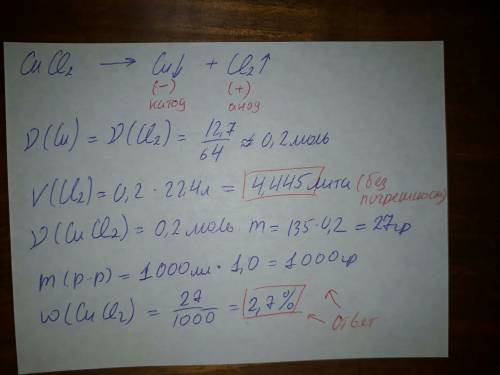 CuCl₂ → Cu↓ + Cl₂↑
(-) (+)
катод анод
ν(Cu) = ν(Cl₂) = 12,7/64 ≈ 0,2 моль
V(Cl₂) = 0,2 · 22,4 л = 4,445 литра (без погрешности)
ν(CuCl₂) = 0,2 моль m = 135·0,2 = 27 гр
m(р-р) = 1000 мл · 1,0 = 1000 гр
ω(CuCl₂) = 27/1000 = 2,7% ← ответ